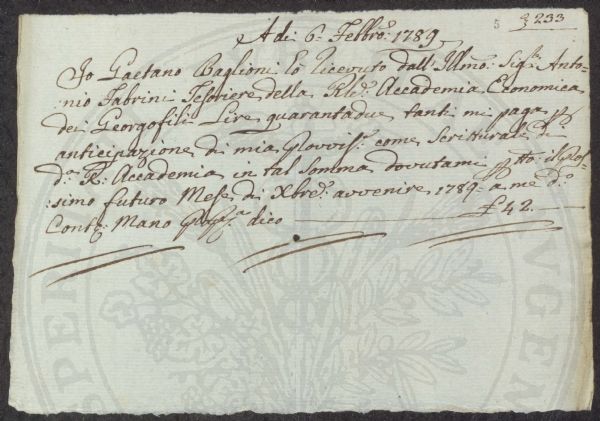 5 233
A di 6. Febbro: 1789
Io Gaetano Baglioni hò ricevuto dall'Illmo: Sigr: Anto-
nio Fabrini Tesoriere della Rle: Accademia Economica
dei Georgofili Lire quarantadue tanti mi paga p
anticipazione di mia Provvise: come Scritturale di
da: R: Accademia in tal Somma dovutami p tto: il Pros-
:simo futuro Mese di Xbre: avvenire 1789 = a me do:
Conto: Mano Propa: dico £ 42.
SPERI
UGEN